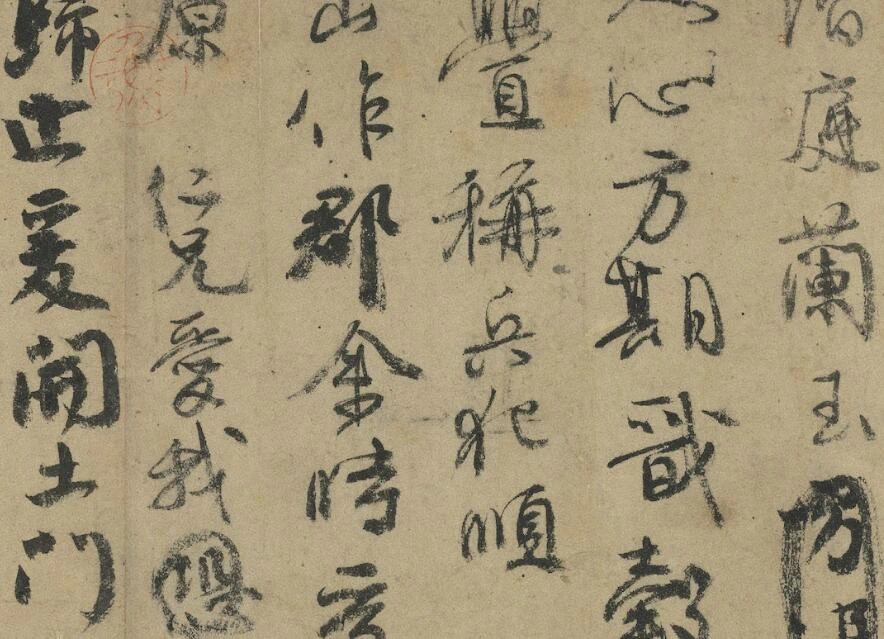 階庭蘭玉
心方期戩穀
釁稱兵犯順
山作郡余時受
原仁兄愛我
歸止爰開土門